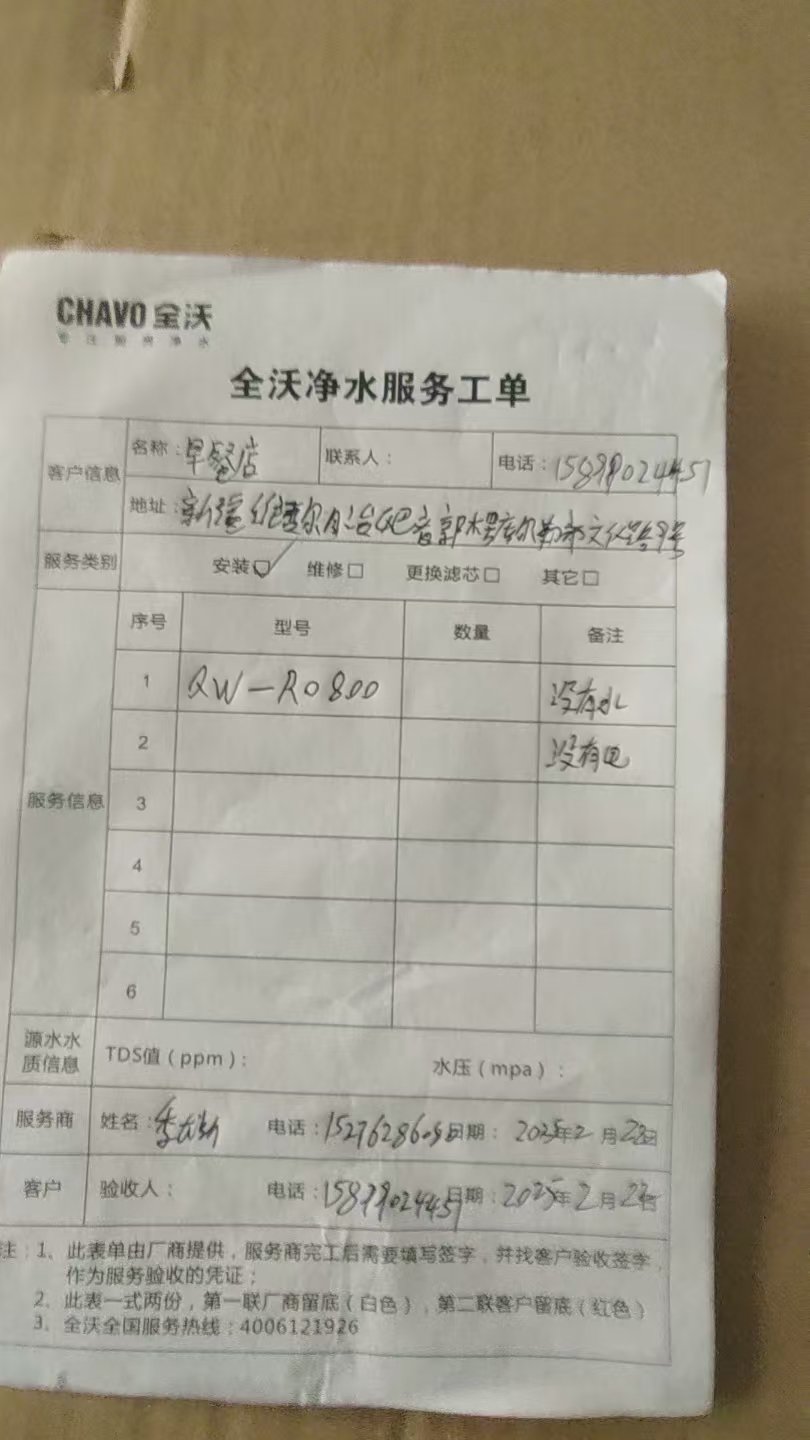 CHAVO 全沃
专注厨房净水
全沃净水服务工单
客户信息 名称：早餐店 联系人： 电话：15899024451
地址：新疆维吾尔自治区巴音郭木楞库尔勒市文化路9号
服务类别 安装☑ 维修□ 更换滤芯□ 其它□
服务信息 序号 型号 数量 备注
1 QW-RO800 没有水
2 没有电
3
4
5
6
源水水质信息 TDS值（ppm）： 水压（mpa）：
服务商 姓名： 电话： 日期：2025年2月23日
客户 验收人： 电话：15899024451 日期：2025年2月23日
注：1、此表单由厂商提供，服务商完工后需要填写签字，并找客户验收签字，
作为服务验收的凭证；
2、此表一式两份，第一联厂商留底（白色），第二联客户留底（红色）
3、全沃全国服务热线：4006121926